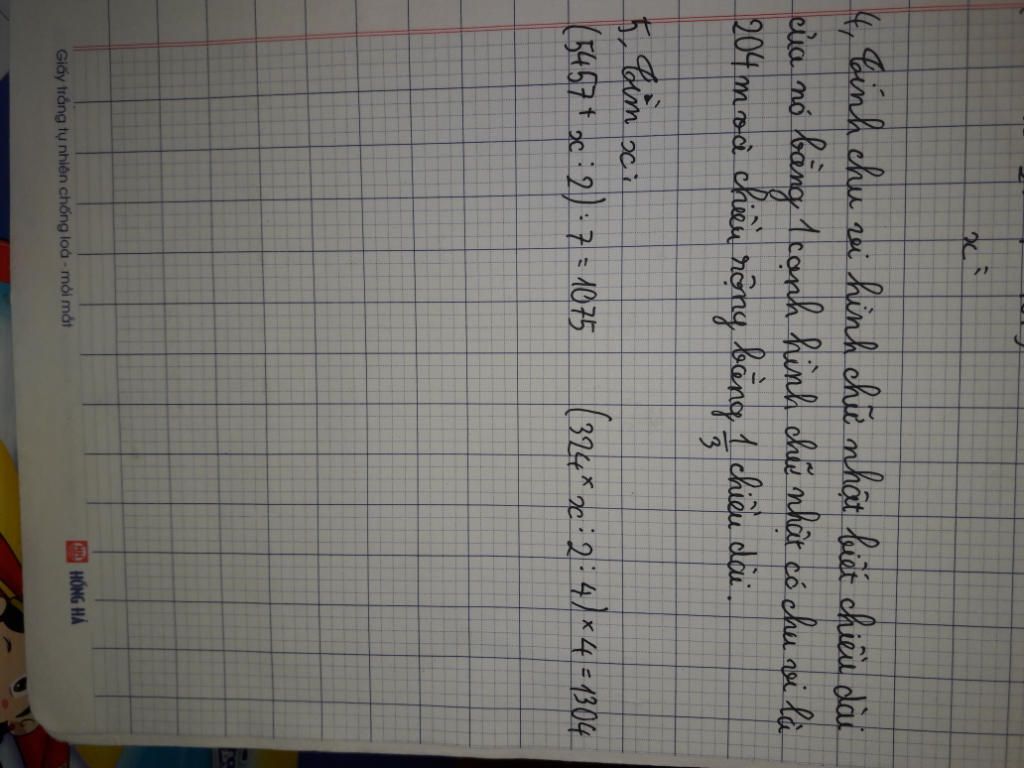 x =
4, Tính chu vi hình chữ nhật biết chiều dài
của nó bằng 1 cạnh hình chữ nhật có chu vi là
204 m và chiều rộng bằng 1/3 chiều dài.
5, Tìm x:
(5457 + x : 2) : 7 = 1075 (324 × x : 2 : 4) × 4 = 1304
Giấy trắng tự nhiên chống loá - mỏi mắt
HỒNG HÀ